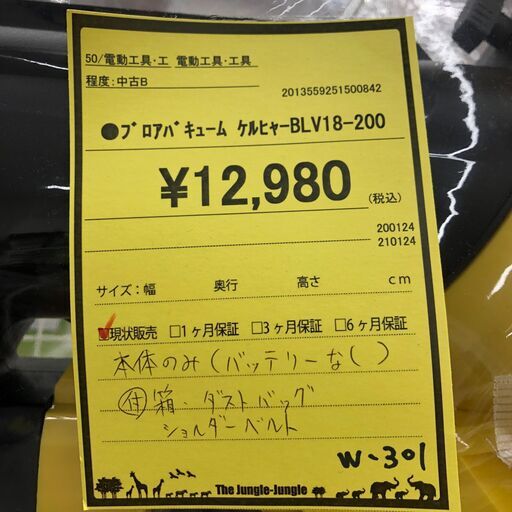 50/電動工具・工 電動工具・工具
程度:中古B
2013559251500842
●ブロアバキューム ケルヒャーBLV18-200
¥12,980
(税込)
200124
210124
サイズ:幅 奥行 高さ cm
☑現状販売 □1ヶ月保証 □3ヶ月保証 □6ヶ月保証
本体のみ(バッテリーなし)
付 箱・ダストバッグ
ショルダーベルト
W-301
The Jungle-Jungle